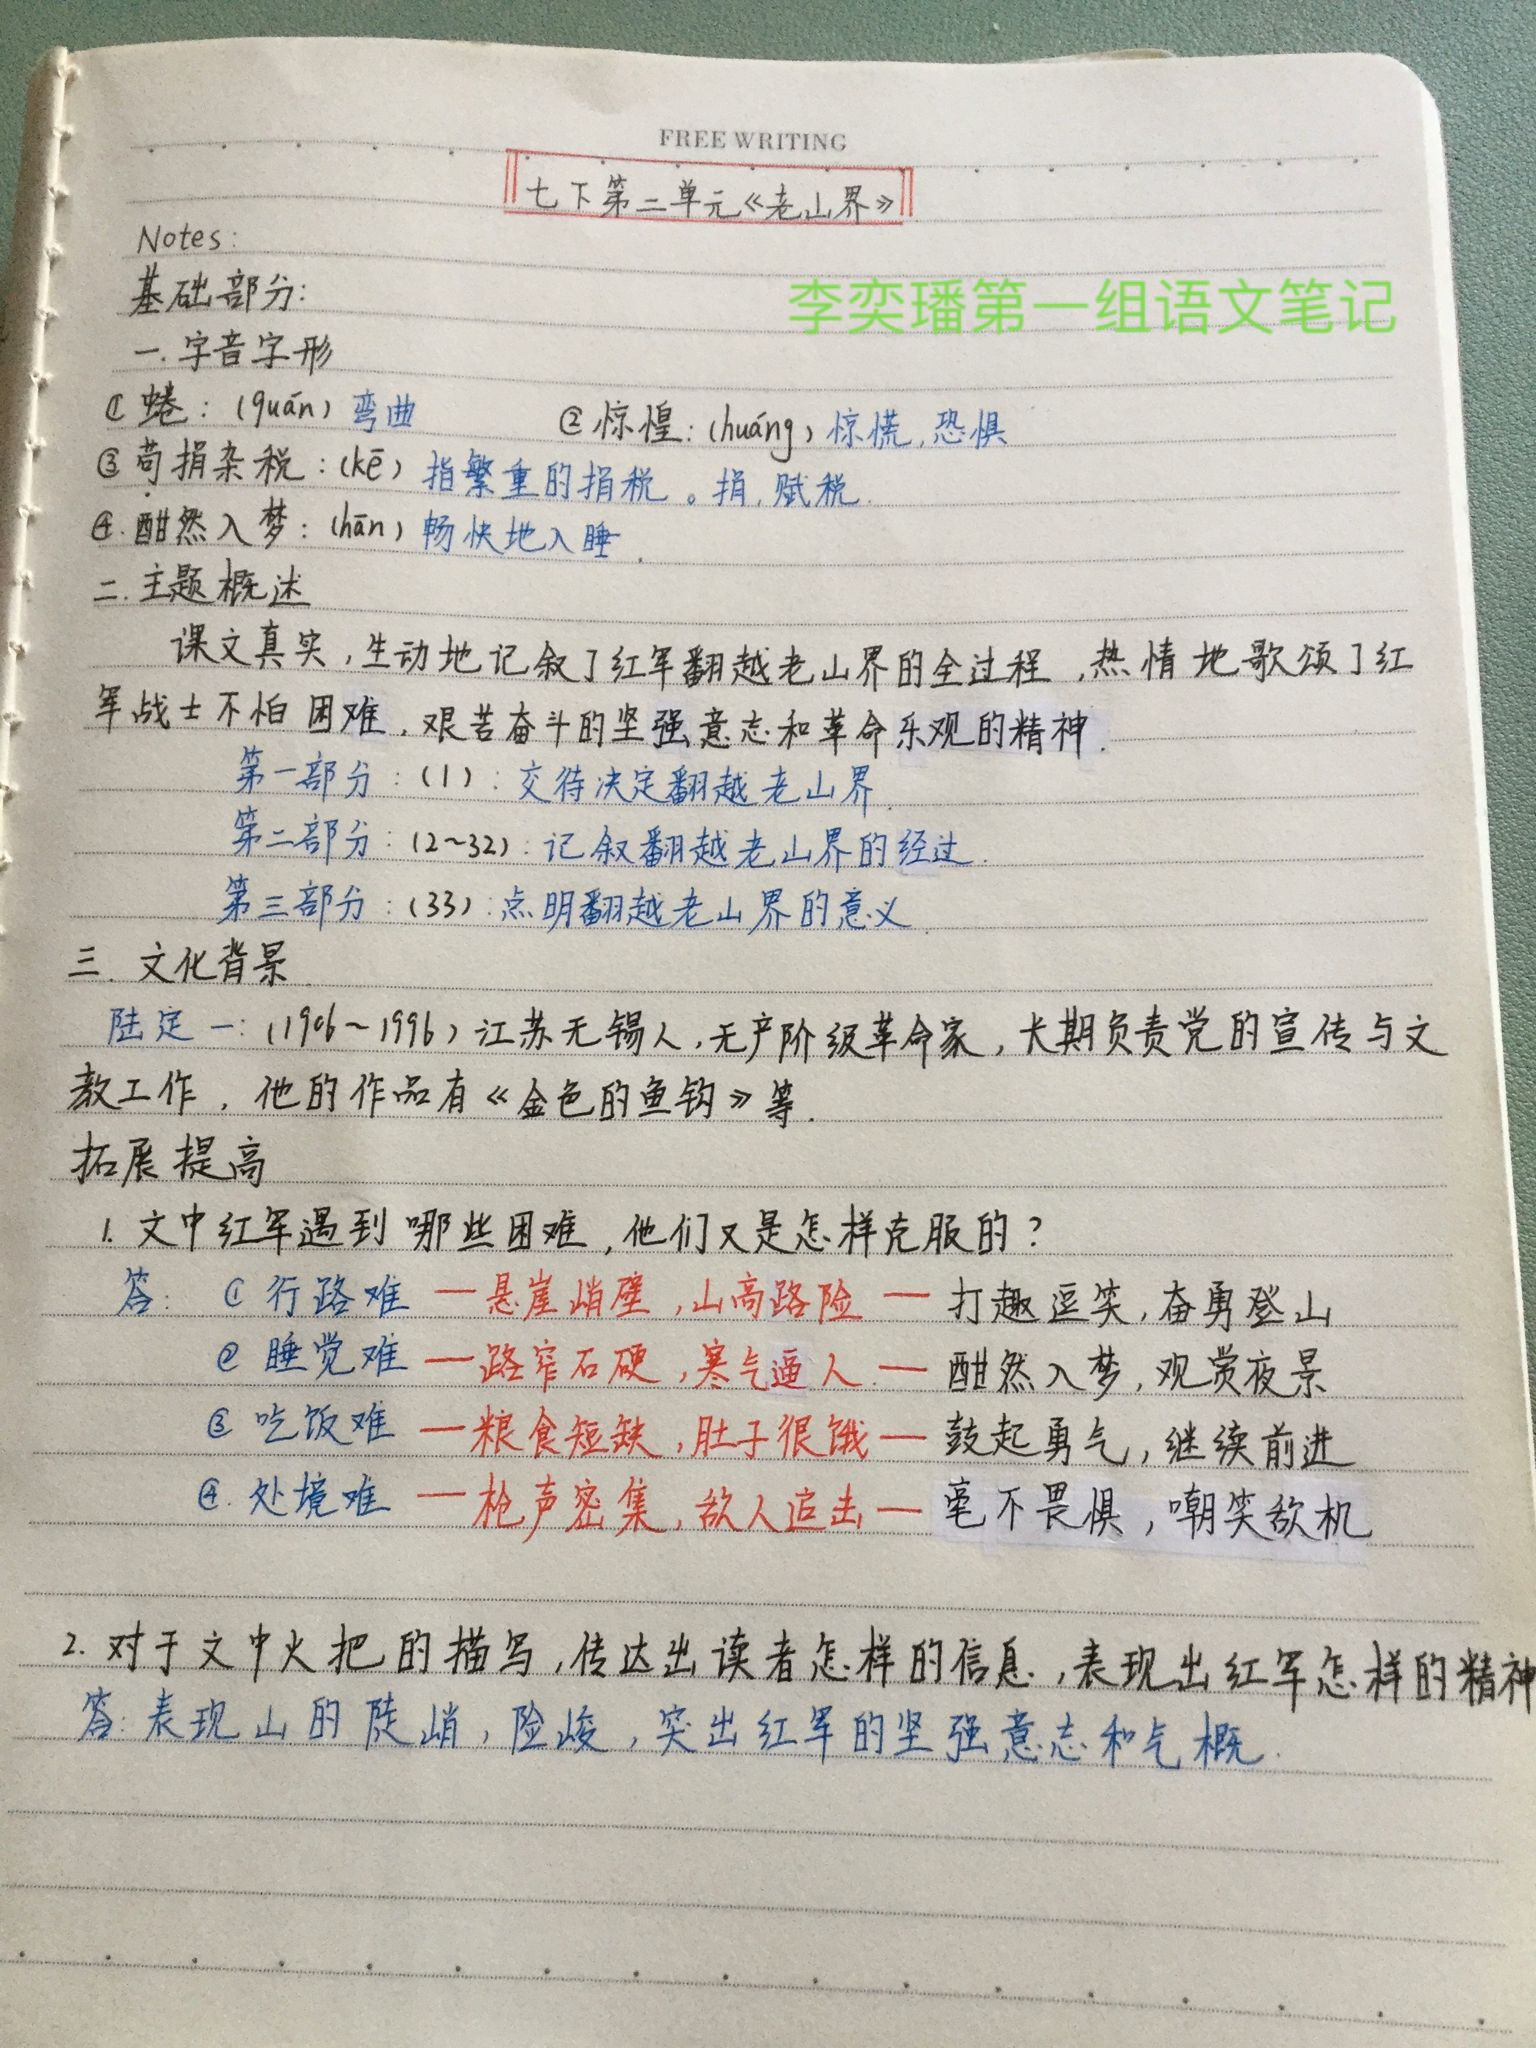 FREE WRITING
七下第二单元《老山界》
Notes:
李奕璠第一组语文笔记
基础部分:
一.字音字形
①蜷:(quán)弯曲 ②惊惶:(huáng)惊慌,恐惧
③苛捐杂税:(kē)指繁重的捐税。捐,赋税.
④.酣然入梦:(hān)畅快地入睡.
二.主题概述
课文真实,生动地记叙了红军翻越老山界的全过程,热情地歌颂了红
军战士不怕困难,艰苦奋斗的坚强意志和革命乐观的精神.
第一部分:(1):交待决定翻越老山界.
第二部分:(2~32):记叙翻越老山界的经过.
第三部分:(33):点明翻越老山界的意义.
三.文化背景.
陆定一:(1906~1996)江苏无锡人,无产阶级革命家,长期负责党的宣传与文
教工作,他的作品有《金色的鱼钩》等.
拓展提高
1.文中红军遇到哪些困难,他们又是怎样克服的?
答:①行路难—悬崖峭壁,山高路险—打趣逗笑,奋勇登山
②睡觉难—路窄石硬,寒气逼人.—酣然入梦,观赏夜景
③吃饭难—粮食短缺,肚子很饿—鼓起勇气,继续前进
④.处境难—枪声密集,敌人追击—毫不畏惧,嘲笑敌机
2.对于文中火把的描写,传达出读者怎样的信息,表现出红军怎样的精神
答:表现山的陡峭,险峻,突出红军的坚强意志和气概.